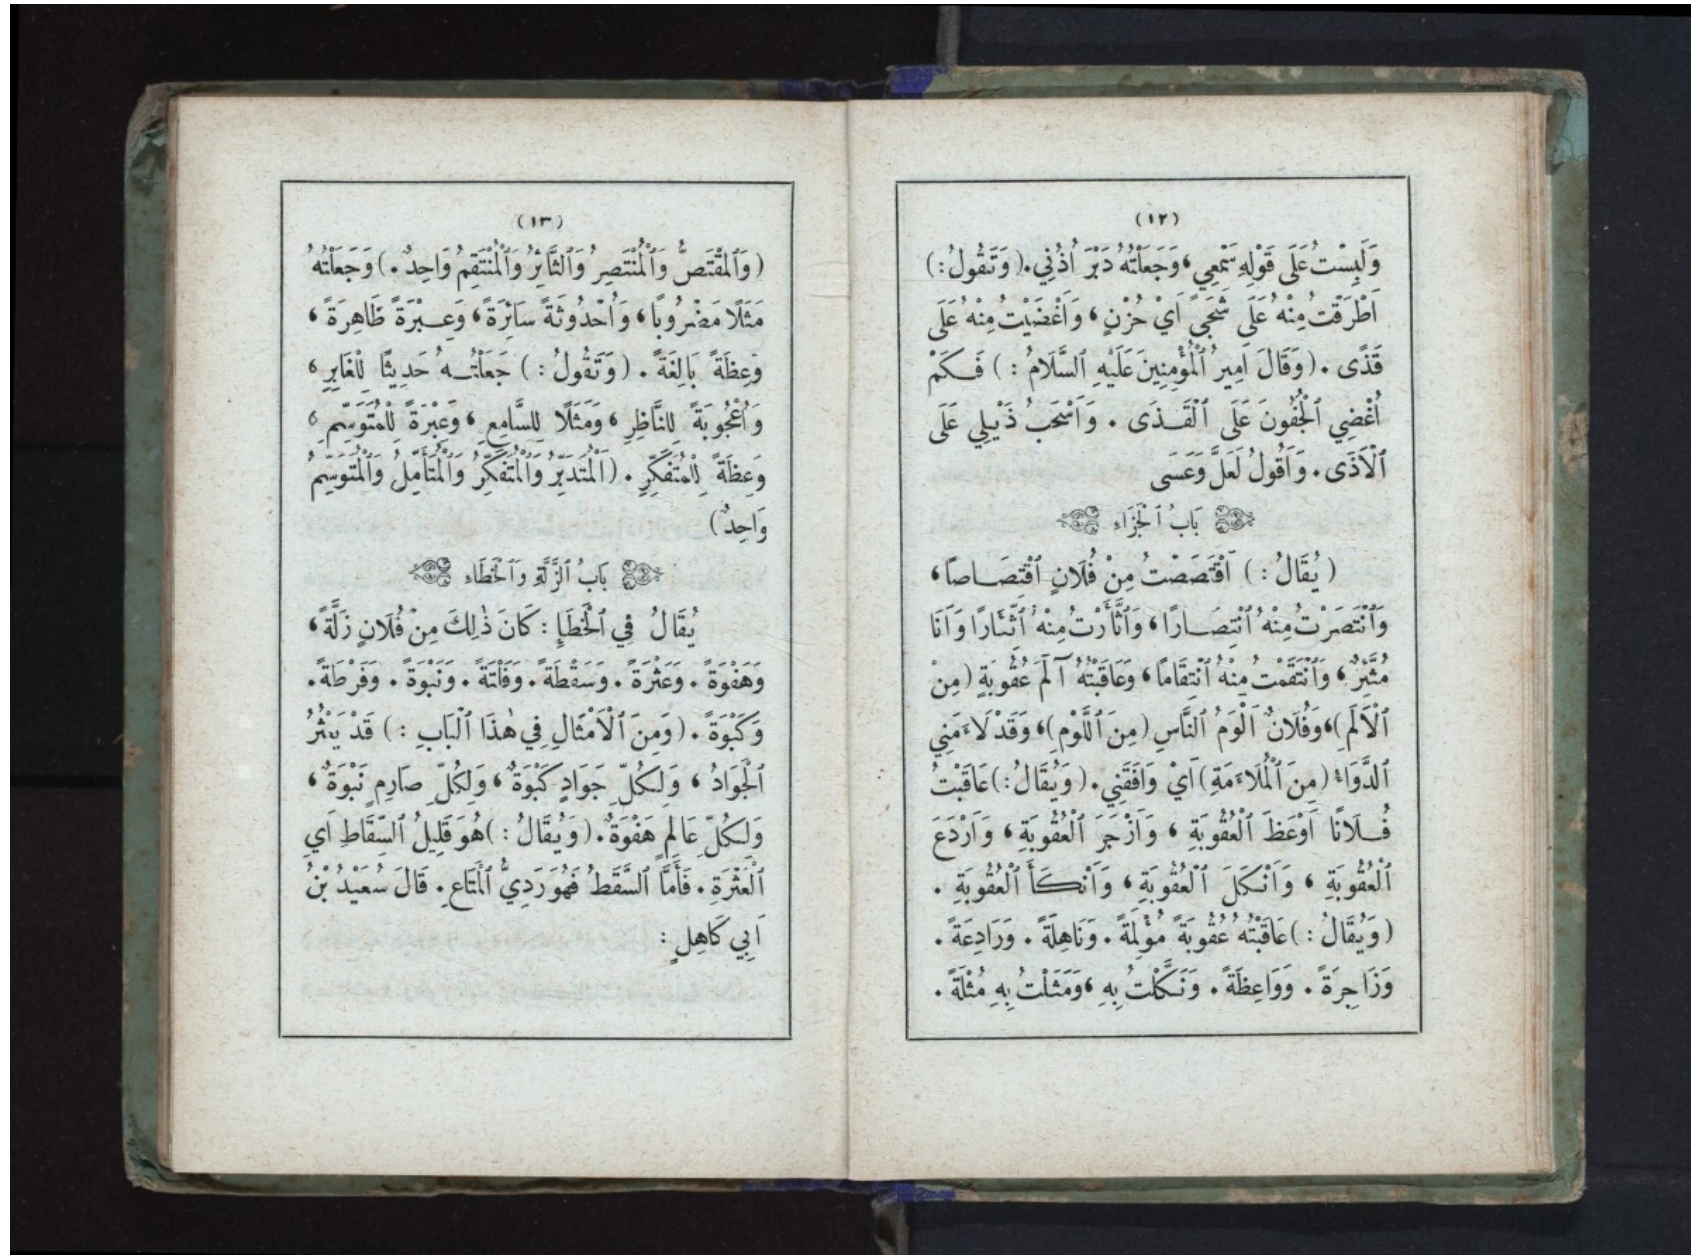 (١٢)
وَلَبِسْتُ عَلَى قَوْلِهِ سَمْعِي، وَجَعَلْتُهُ دَبْرَ أُذُنِي. (وَتَقُولُ:)
اَطْرَقْتُ مِنْهُ عَلَى شَجًى اَيْ حُزْنٍ، وَاَغْضَيْتُ مِنْهُ عَلَى
قَذًى. (وَقَالَ اَمِيرُ ٱلْمُؤْمِنِينَ عَلَيْهِ ٱلسَّلَامُ:) فَكَمْ
اُغْضِي ٱلْجُفُونَ عَلَى ٱلْقَذَى. وَاَسْحَبُ ذَيْلِي عَلَى
ٱلْاَذَى. وَاَقُولُ لَعَلَّ وَعَسَى
بَابُ ٱلْجَزَاءِ
(يُقَالُ:) اَقْتَصَصْتُ مِنْ فُلَانٍ ٱقْتِصَاصًا،
وَٱنْتَصَرْتُ مِنْهُ ٱنْتِصَارًا، وَٱثَّأَرْتُ مِنْهُ ٱثِّئَارًا وَاَنَا
مُثَّئِرٌ، وَٱنْتَقَمْتُ مِنْهُ ٱنْتِقَامًا، وَعَاقَبْتُهُ آلَمَ عُقُوبَةٍ (مِنَ
ٱلْاَلَمِ)، وَفُلَانٌ اَلْوَمُ ٱلنَّاسِ (مِنَ ٱللَّوْمِ)، وَقَدْ لَاءَمَنِي
ٱلدَّوَاءُ (مِنَ ٱلْمُلَاءَمَةِ) اَيْ وَافَقَنِي. (وَيُقَالُ:) عَاقَبْتُ
فُلَانًا اَوْعَظَ ٱلْعُقُوبَةِ، وَاَزْجَرَ ٱلْعُقُوبَةِ، وَاَرْدَعَ
ٱلْعُقُوبَةِ، وَاَنْكَلَ ٱلْعُقُوبَةِ، وَاَنْكَأَ ٱلْعُقُوبَةِ.
(وَيُقَالُ:) عَاقَبْتُهُ عُقُوبَةً مُؤْلِمَةً. وَنَاهِلَةً. وَرَادِعَةً.
وَزَاجِرَةً. وَوَاعِظَةً. وَنَكَّلْتُ بِهِ، وَمَثَلْتُ بِهِ مُثْلَةً.
(١٣)
(وَٱلْمُقْتَصُّ وَٱلْمُنْتَصِرُ وَٱلثَّائِرُ وَٱلْمُنْتَقِمُ وَاحِدٌ.) وَجَعَلْتُهُ
مَثَلًا مَضْرُوبًا، وَاُحْدُوثَةً سَائِرَةً، وَعِبْرَةً ظَاهِرَةً،
وَعِظَةً بَالِغَةً. (وَتَقُولُ:) جَعَلْتُهُ حَدِيثًا لِلْغَابِرِ،
وَاُعْجُوبَةً لِلنَّاظِرِ، وَمَثَلًا لِلسَّامِعِ، وَعِبْرَةً لِلْمُتَوَسِّمِ،
وَعِظَةً لِلْمُتَفَكِّرِ. (اَلْمُتَدَبِّرُ وَٱلْمُتَفَكِّرُ وَٱلْمُتَأَمِّلُ وَٱلْمُتَوَسِّمُ
وَاحِدٌ)
بَابُ ٱلزَّلَّةِ وَٱلْخَطَاءِ
يُقَالُ فِي ٱلْخَطَإِ: كَانَ ذٰلِكَ مِنْ فُلَانٍ زَلَّةً،
وَهَفْوَةً. وَعَثْرَةً. وَسَقْطَةً. وَفَلْتَةً. وَنَبْوَةً. وَفَرْطَةً.
وَكَبْوَةً. (وَمِنَ ٱلْاَمْثَالِ فِي هٰذَا ٱلْبَابِ:) قَدْ يَعْثُرُ
ٱلْجَوَادُ، وَلِكُلِّ جَوَادٍ كَبْوَةٌ، وَلِكُلِّ صَارِمٍ نَبْوَةٌ،
وَلِكُلِّ عَالِمٍ هَفْوَةٌ. (وَيُقَالُ:) هُوَ قَلِيلُ ٱلسِّقَاطِ اَيِ
ٱلْعَثْرَةِ. فَأَمَّا ٱلسَّقَطُ فَهُوَ رَدِيُّ ٱلْمَتَاعِ. قَالَ سُعَيْدُ بْنُ
اَبِي كَاهِلٍ: